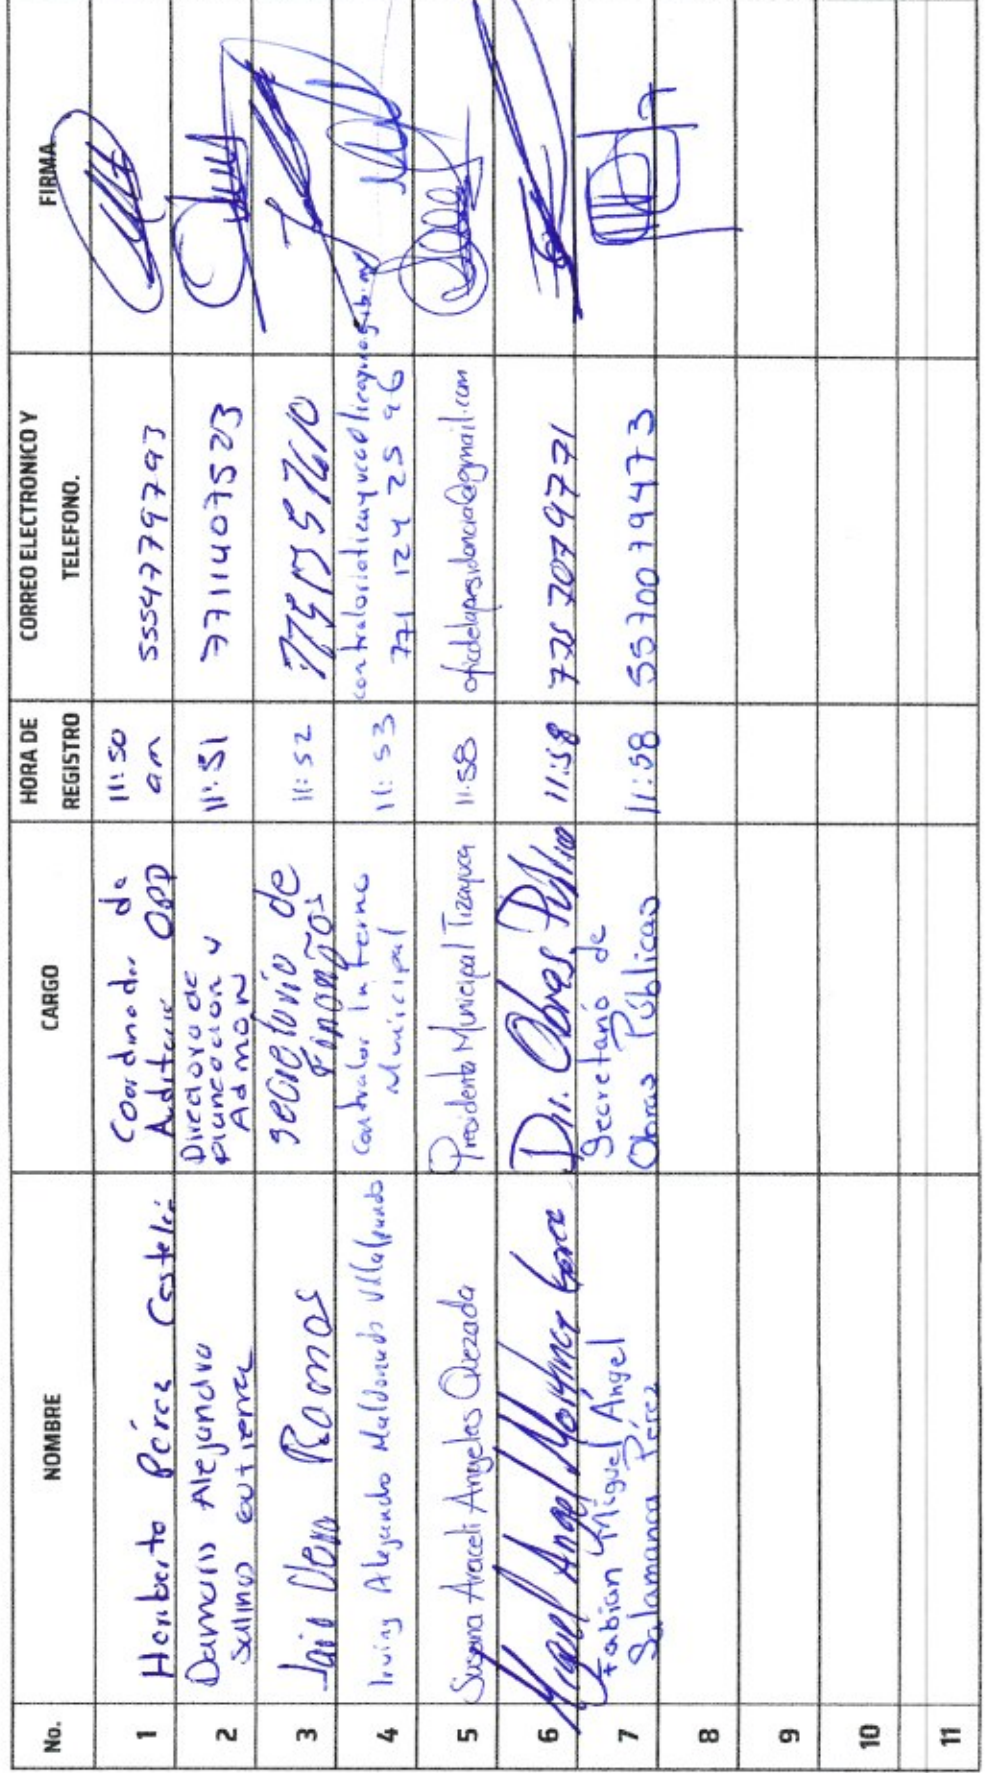 No. NOMBRE CARGO HORA DE REGISTRO CORREO ELECTRONICO Y TELEFONO. FIRMA
1 Heriberto Pérez Coordinador de Auditoria 11:50 am 5554779793
2 Damaris Alejandra Salinas Directora de Admon 11:51 7711407523
3 Ramos secretario de Finanzas 11:52
4 Irving Alejandro Maldonado Villalpando Contralor Interno Municipal 11:53 771 124 25 96
5 Susana Araceli Angeles Quezada Presidenta Municipal Tizayuca 11:58 oficdelapresidencia@gmail.com
6 Miguel Angel Martinez Dir. Obras 11:58 775 707 9771
7 Fabian Miguel Ángel Salamanca Pérez Secretario de Obras Públicas 11:58 5570079473
8
9
10
11